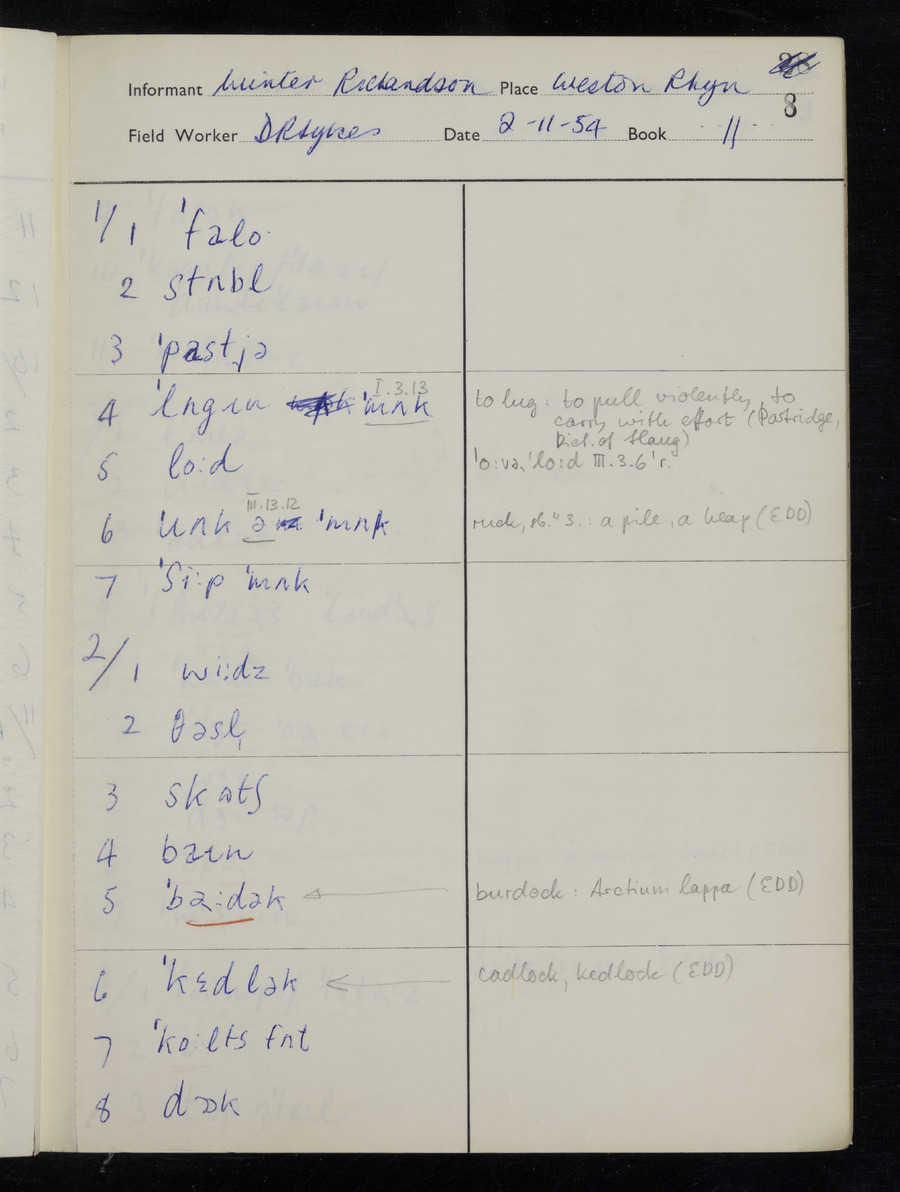 8
Informant Winter Richardson Place Weston Rhyn
Field Worker DRSykes Date 2-11-54 Book 11
1/1 ˈfalo
2 stʌbl
3 ˈpastjə
4 ˈlʌgɪn ˈmʌk I.3.13
to lug: to pull violently, to
carry with effort (Partridge,
Dict. of Slang)
5 lo:d
ˈo:və,ˈlo:d III.3.6 'r.
III.13.12
6 ˈɹʌk ə ˈmʌk
ruck, sb.⁴ 3.: a pile, a heap (EDD)
7 ˈʃi:p ˈmʌk
2/1 wi:dz
2 θəsl̩
3 skɒtʃ
4 baɪn
5 ˈbə:dək
burdock: Arctium lappa (EDD)
6 ˈkɛdlək
cadlock, kedlock (EDD)
7 ˈko:lts fʌt
8 dɔk